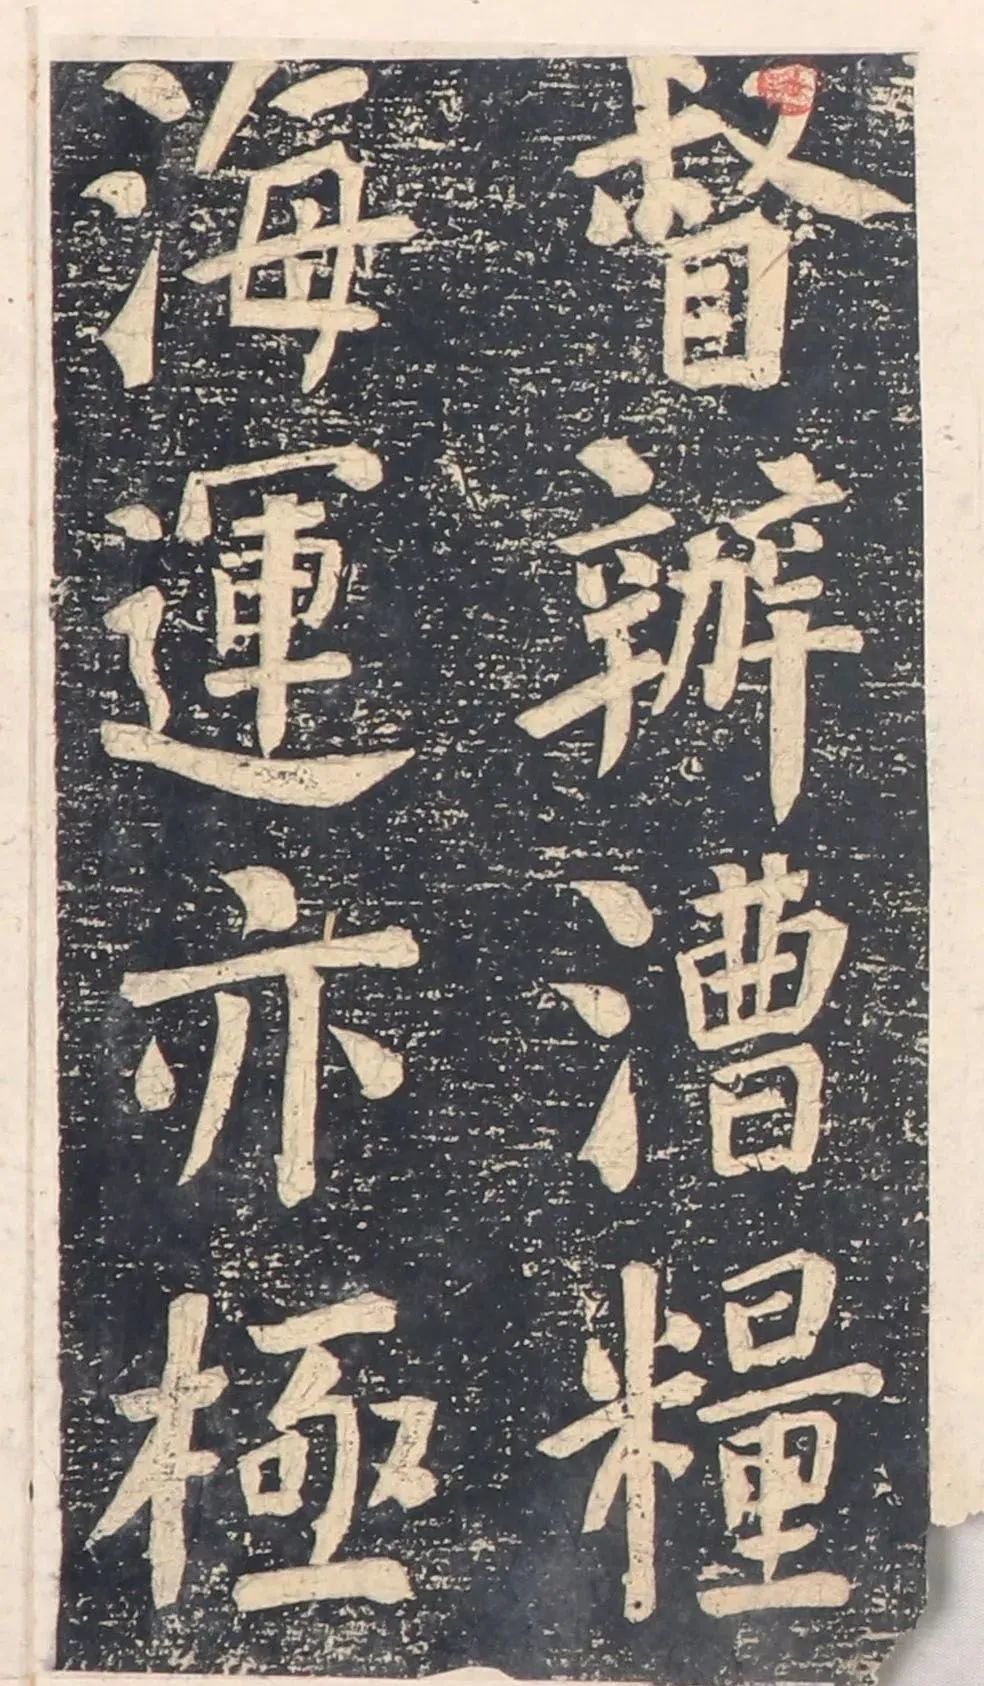 督辦漕糧
海運亦極